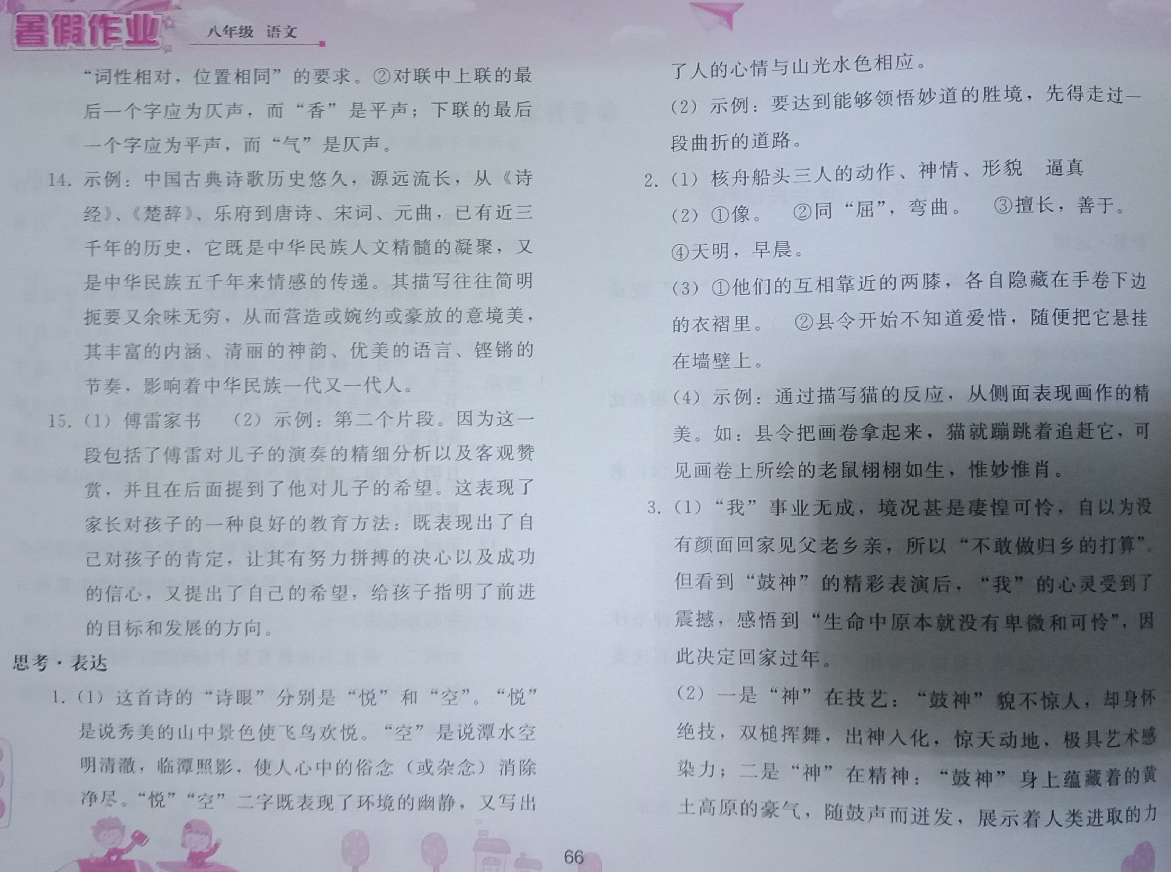 暑假作业
八年级 语文
“词性相对，位置相同”的要求。②对联中上联的最
后一个字应为仄声，而“香”是平声；下联的最后
一个字应为平声，而“气”是仄声。
14. 示例：中国古典诗歌历史悠久，源远流长，从《诗
经》、《楚辞》、乐府到唐诗、宋词、元曲，已有近三
千年的历史，它既是中华民族人文精髓的凝聚，又
是中华民族五千年来情感的传递。其描写往往简明
扼要又余味无穷，从而营造或婉约或豪放的意境美，
其丰富的内涵、清丽的神韵、优美的语言、铿锵的
节奏，影响着中华民族一代又一代人。
15. （1）傅雷家书 （2）示例：第二个片段。因为这一
段包括了傅雷对儿子的演奏的精细分析以及客观赞
赏，并且在后面提到了他对儿子的希望。这表现了
家长对孩子的一种良好的教育方法：既表现出了自
己对孩子的肯定，让其有努力拼搏的决心以及成功
的信心，又提出了自己的希望，给孩子指明了前进
的目标和发展的方向。
思考·表达
1. （1）这首诗的“诗眼”分别是“悦”和“空”。“悦”
是说秀美的山中景色使飞鸟欢悦。“空”是说潭水空
明清澈，临潭照影，使人心中的俗念（或杂念）消除
净尽。“悦”“空”二字既表现了环境的幽静，又写出
了人的心情与山光水色相应。
（2）示例：要达到能够领悟妙道的胜境，先得走过一
段曲折的道路。
2. （1）核舟船头三人的动作、神情、形貌 逼真
（2）①像。 ②同“屈”，弯曲。 ③擅长，善于。
④天明，早晨。
（3）①他们的互相靠近的两膝，各自隐藏在手卷下边
的衣褶里。 ②县令开始不知道爱惜，随便把它悬挂
在墙壁上。
（4）示例：通过描写猫的反应，从侧面表现画作的精
美。如：县令把画卷拿起来，猫就蹦跳着追赶它，可
见画卷上所绘的老鼠栩栩如生，惟妙惟肖。
3. （1）“我”事业无成，境况甚是凄惶可怜，自以为没
有颜面回家见父老乡亲，所以“不敢做归乡的打算”。
但看到“鼓神”的精彩表演后，“我”的心灵受到了
震撼，感悟到“生命中原本就没有卑微和可怜”，因
此决定回家过年。
（2）一是“神”在技艺：“鼓神”貌不惊人，却身怀
绝技，双槌挥舞，出神入化，惊天动地，极具艺术感
染力；二是“神”在精神：“鼓神”身上蕴藏着的黄
土高原的豪气，随鼓声而迸发，展示着人类进取的力
66